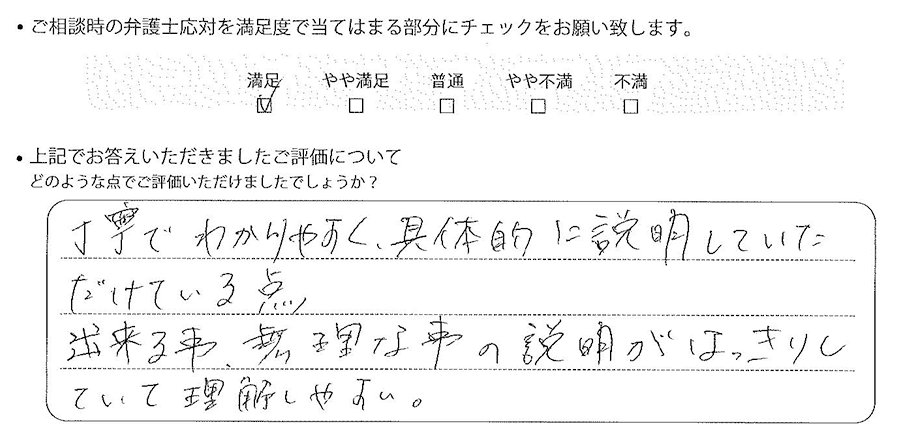 ・ご相談時の弁護士応対を満足度で当てはまる部分にチェックをお願い致します。
満足 やや満足 普通 やや不満 不満
☑ □ □ □ □
・上記でお答えいただきましたご評価について
どのような点でご評価いただけましたでしょうか？
丁寧でわかりやすく、具体的に説明していた
だけている点
出来る事、無理な事の説明がはっきりし
ていて理解しやすい。